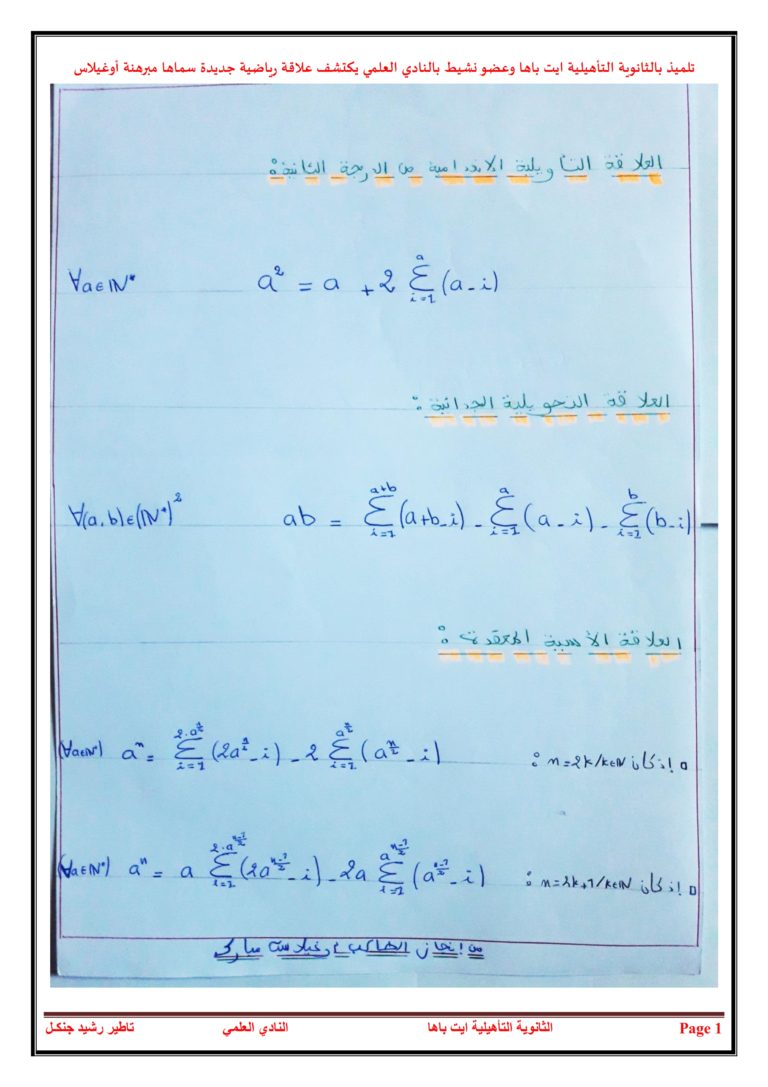 تلميذ بالثانوية التأهيلية ايت باها وعضو نشيط بالنادي العلمي يكتشف علاقة رياضية جديدة سماها مبرهنة أوغيلاس
العلاقة التأويلية الانعدامية من الدرجة الثانية:
∀a∈ℕ* a² = a + 2 Σ_{i=1}^{a} (a-i)
العلاقة التحويلية الجدائية:
∀(a,b)∈(ℕ*)² ab = Σ_{i=1}^{a+b} (a+b-i) - Σ_{i=1}^{a} (a-i) - Σ_{i=1}^{b} (b-i)
العلاقة الأسية المعقدة:
□ إذا كان n=2k/k∈ℕ : (∀a∈ℕ*) aⁿ = Σ_{i=1}^{2.a^{n/2}} (2a^{n/2}-i) - 2 Σ_{i=1}^{a^{n/2}} (a^{n/2}-i)
□ إذا كان n=2k+1/k∈ℕ : (∀a∈ℕ*) aⁿ = a Σ_{i=1}^{2.a^{(n-1)/2}} (2a^{(n-1)/2}-i) - 2a Σ_{i=1}^{a^{(n-1)/2}} (a^{(n-1)/2}-i)
من إنجاز الطالب أوغيلاس مبارك
تاطير رشيد جنكل النادي العلمي الثانوية التأهيلية ايت باها Page 1